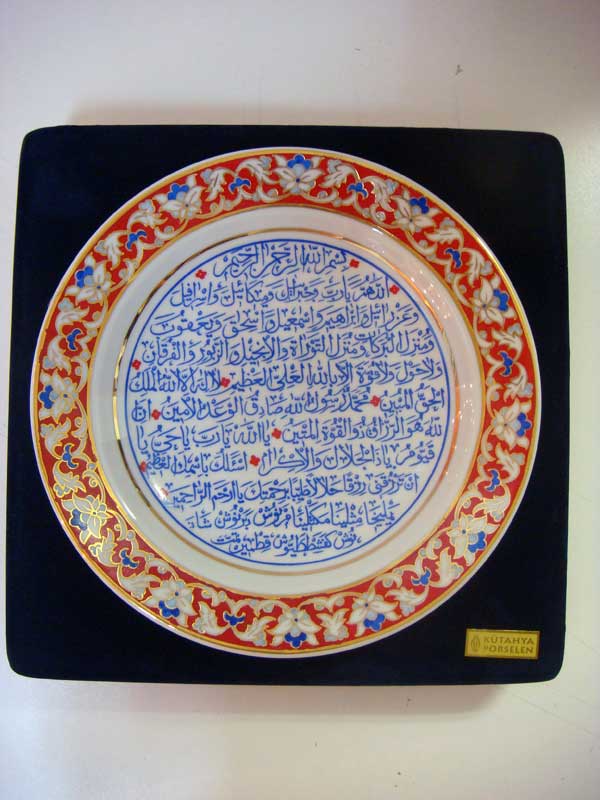 بسم الله الرحمن الرحيم
اللهم يا رب جبرائيل وميكائيل واسرافيل
وعزرائيل وابراهيم واسمعيل واسحق ويعقوب
ومنزل البركات ومنزل التوراة والانجيل والزبور والفرقان
ولا حول ولا قوة الا بالله العلي العظيم لا اله الا الله الملك
الحق المبين محمد رسول الله صادق الوعد الامين ان
الله هو الرزاق ذو القوة المتين يا الله يا رب يا حي يا
قيوم يا ذا الجلال والاكرام اسئلك باسمك العظيم
ان ترزقني رزقا حلالا طيبا برحمتك يا ارحم الراحمين
يمليخا مثلينا مكثلينا مرنوش دبرنوش شاذ
نوش كفشططيوش قطمير
KÜTAHYA
PORSELEN